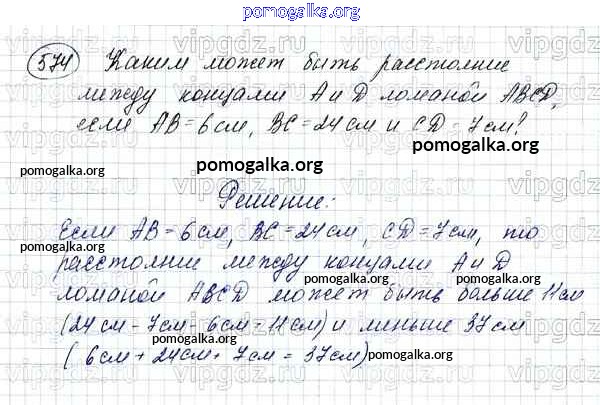 pomogalka.org
574 Каким может быть расстояние
между концами A и D ломаной ABCD,
если AB = 6 см, BC = 24 см и CD = 7 см?
pomogalka.org
pomogalka.org
Решение:
Если AB = 6 см, BC = 24 см, CD = 7 см, то
pomogalka.org
расстояние между концами A и D
pomogalka.org
pomogalka.org
ломаной ABCD может быть больше 11 см
(24 см - 7 см - 6 см = 11 см) и меньше 37 см
(6 см + 24 см + 7 см = 37 см)
pomogalka.org
pomogalka.org